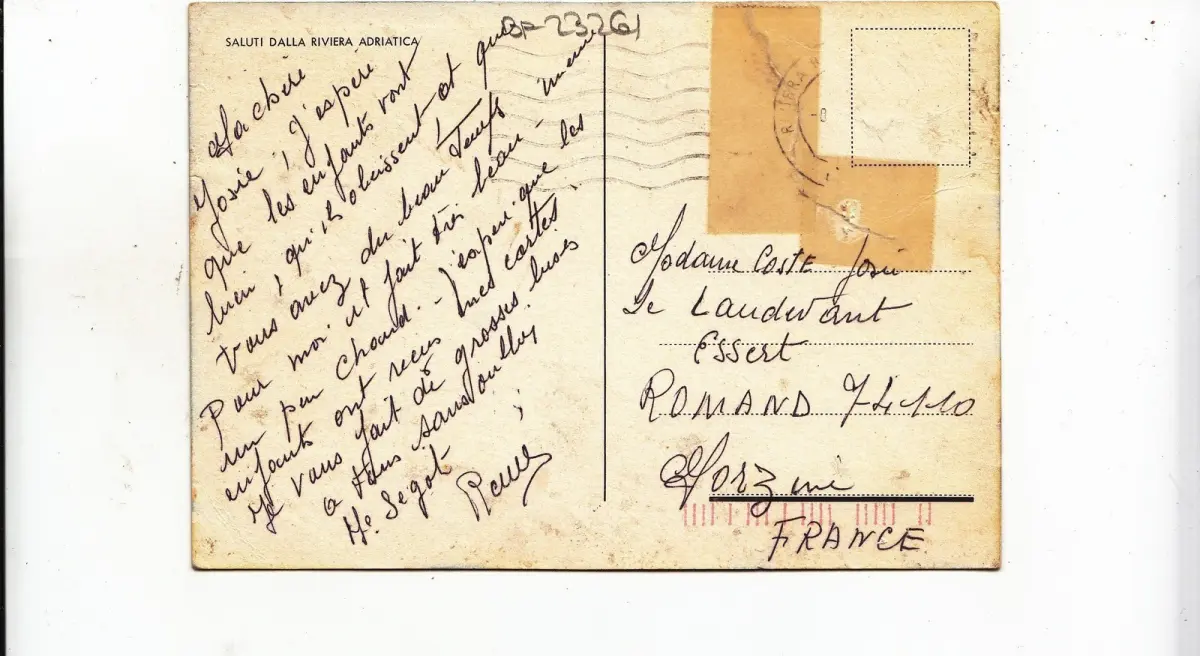 BF-23261
SALUTI DALLA RIVIERA ADRIATICA
Ma chère
Josie, j'espère
que les enfants vont
bien, qu'ils obeissent et que
vous avez du beau temps
Pour moi il fait très beau -
un peu chaud. - J'espère que les
enfants ont recus mes cartes
Je vous fait de grosses bises
a tous sans oublier
Me Segot
Madame COSTE Josie
Le Laudevant
Essert
ROMAND 74110
Morzine
FRANCE